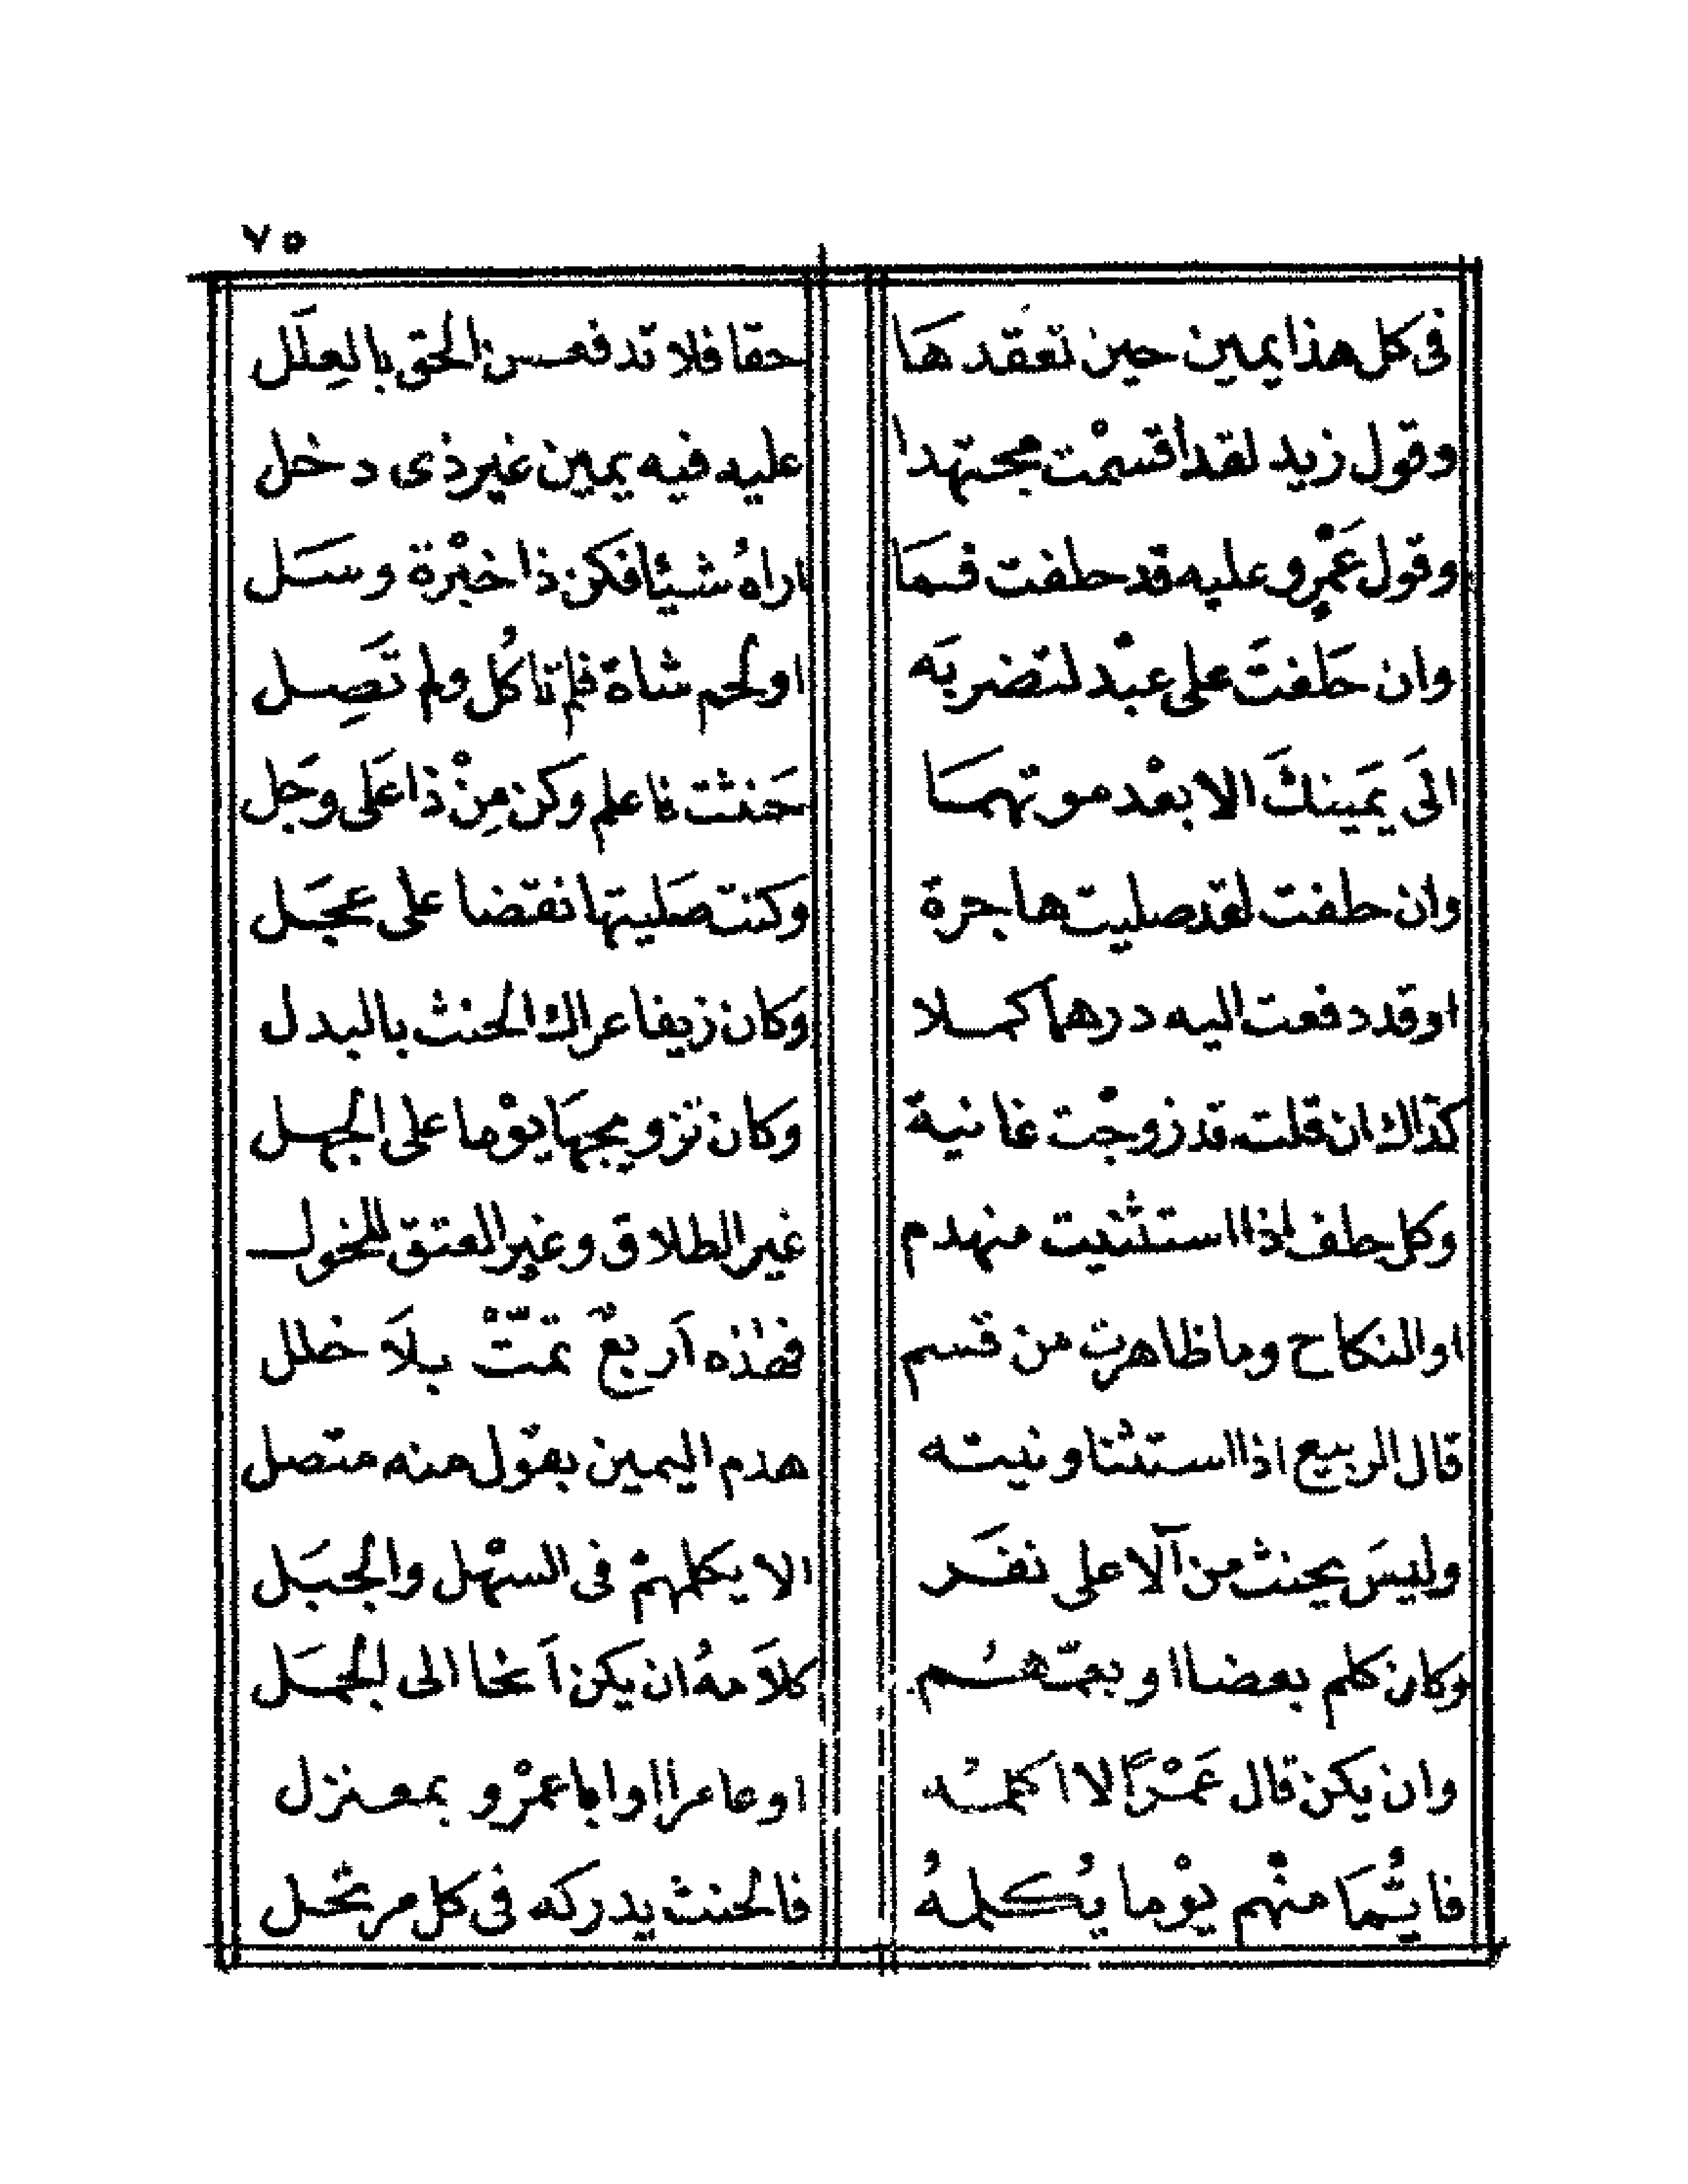 ٧٥
فى كل هذا يمين حين تعقدها حقا فلا تدفعن الحق بالعِلَل
وقول زيد لقد اقسمْت مجتهدا عليه فيه يمين غير ذى دخل
وقول عَمْرٍو عليه قد حلفت فمَا اراهُ شيئا فكن ذا خبْرة وسَل
وان حَلفتَ على عبْد لتضربَه او لحم شاة فلم تاكُل ولم تَصِل
الَى يَمينكَ الا بعْد موتهمَا حَنثت فاعلم وكن مِنْ ذا عَلى وَجَل
وان حلفت لقد صليت هاجرة وكنت صَليتها نقضا على عجَل
او قد دفعت اليه درهما كملا وكان زيفا عراك الحنث بالبدل
كذاك ان قلت قد زوجْت غانية وكان تزويجهَا يوْما على الجهل
وكل حلف اذا استثنيت منهدم غير الطلاق وغير العتق للخول
او النكاح وما ظاهرت من قسم فهٰذه اَربعٌ تمّتْ بلاَ خلل
قال الربيع اذا استثنا ونيته هدم اليمين بقول منه متصل
وليسَ يحنث من آلا على نفَر الا يكلمهمْ فى السهْل والجبَل
وكان كلم بعضا او بعمّهُم كلاَمهُ ان يكن اَنحا الى الجمَل
وان يكن قال عَمْراً لا اكلمُه او عامرا او ابا عمْرو بمعنزل
فايُّمَا منْهم يوْما يُكلمهُ فالحنث يدركه فى كل مرتحَل